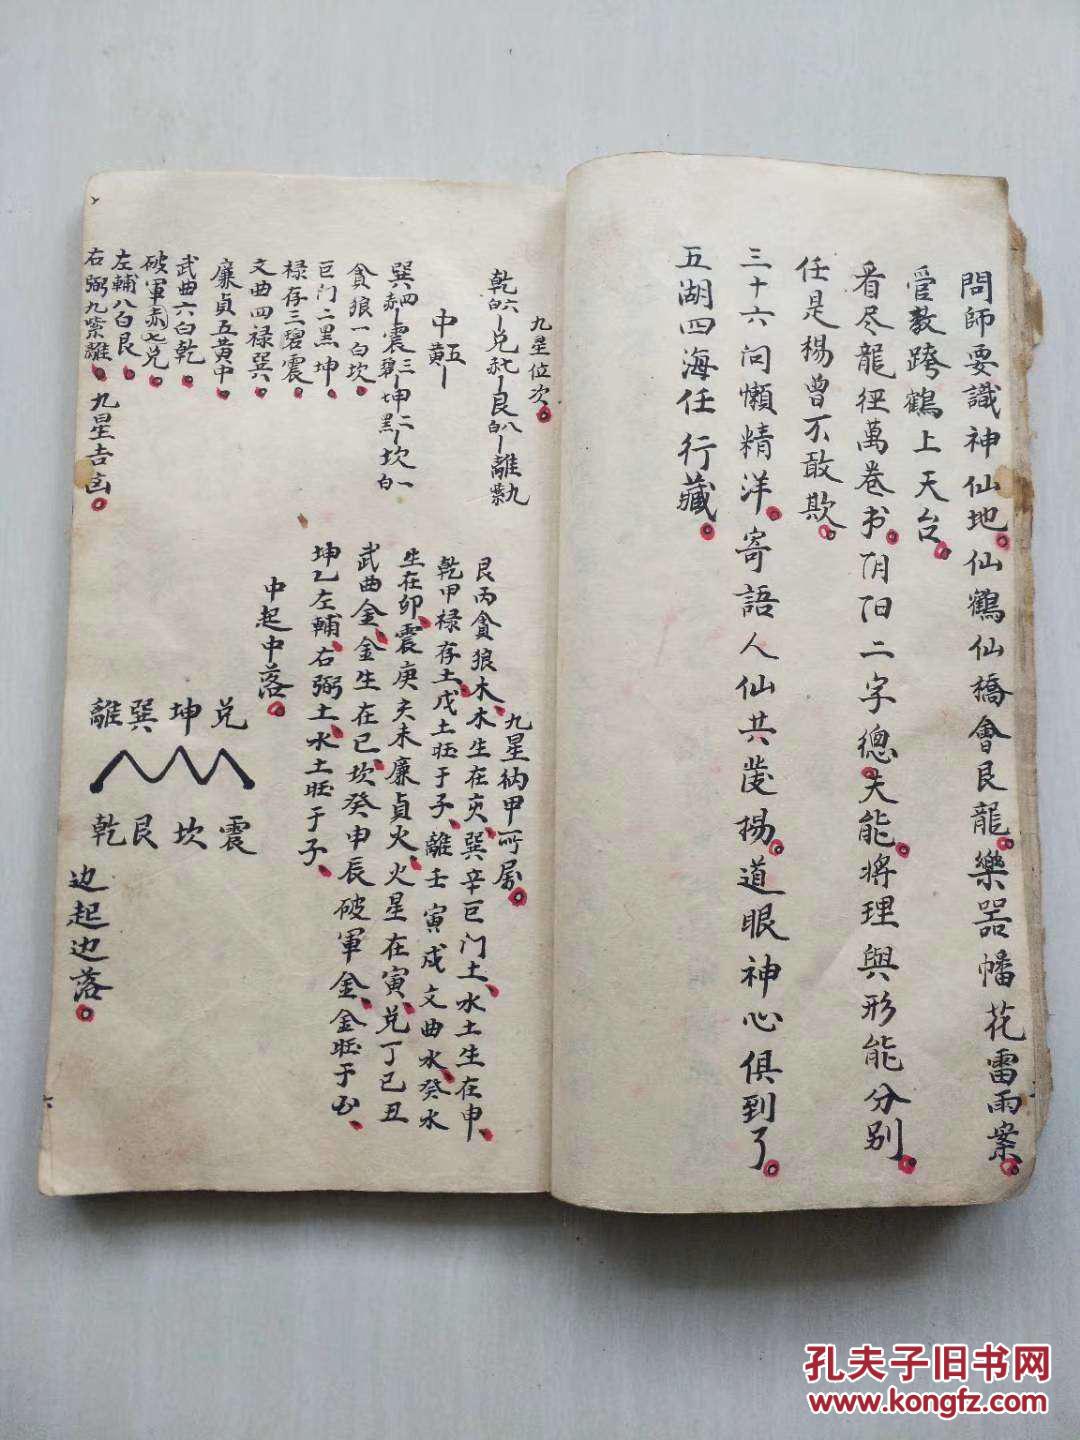 問師要識神仙地。仙鶴仙橋會艮龍。樂器幡花雷雨案。
管教跨鶴上天台。
看尽龍經萬卷书。阴阳二字總。夫能。將理與形能分别。
任是楊曾不敢欺。
三十六问懶精洋。寄語人仙共發揚。道眼神心俱到了。
五湖四海任行藏。
九星位次。
乾六白—兑七赤—艮八白—離九紫
中五黄—
巽四—震三碧—坤二黑—坎一白
貪狼一白坎。
巨门二黑坤。
禄存三碧震。
文曲四禄巽。
廉貞五黄中。
武曲六白乾。
破軍赤七兑。
左輔八白艮。
右弼九紫離。九星吉凶。
九星纳甲所属。
艮丙貪狼木、木生在亥、巽辛巨门土、水土生在申、
乾甲禄存土、戊土旺于子、離壬寅戍文曲水、癸水
生在卯、震庚亥未廉貞火、火星在寅、兑丁巳丑
武曲金、金生在巳、坎癸申辰破軍金、金旺于
坤乙左輔、右弼土、水土旺于子、
中起中落。
離巽坤兑
乾艮坎震
边起边落。
孔夫子旧书网
www.kongfz.com